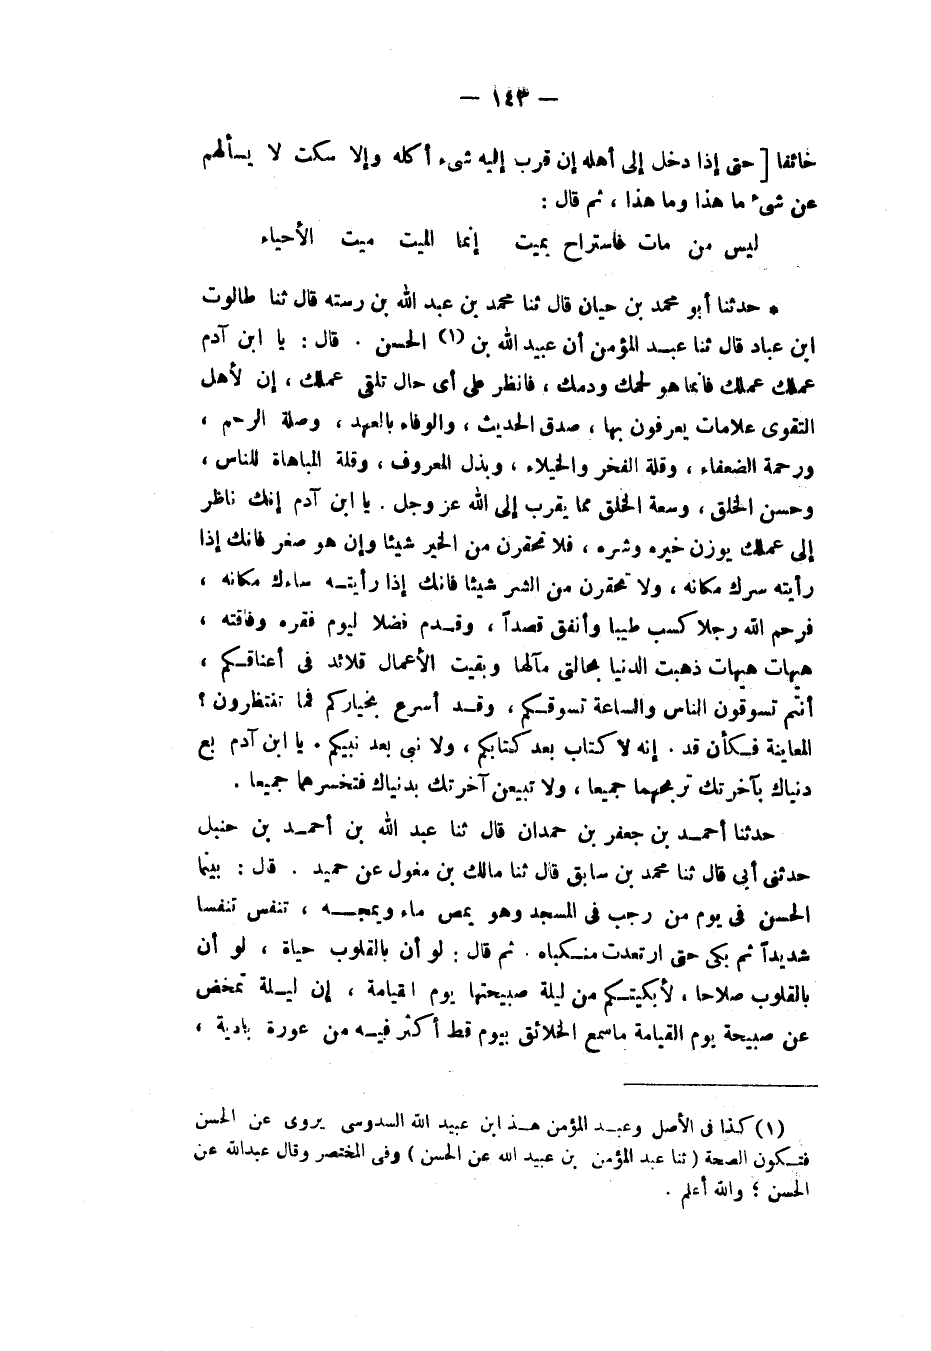 — ١٤٣ —
خائفا [ حتى إذا دخل إلى أهله إن قرب إليه شىء أكله وإلا سكت لا يسألهم
عن شىء ما هذا وما هذا ، ثم قال :
ليس من مات فاستراح بميت إنما الميت ميت الأحياء
* حدثنا أبو محمد بن حيان قال ثنا محمد بن عبد الله بن رسته قال ثنا طالوت
ابن عباد قال ثنا عبـد المؤمن أن عبيد الله بن (١) الحسن . قال : يا ابن آدم
عملك عملك فانما هو لحمك ودمك ، فانظر على أى حال تلقى عملك ، إن لأهل
التقوى علامات يعرفون بها ، صدق الحديث ، والوفاء بالعهد ، وصلة الرحم ،
ورحمة الضعفاء ، وقلة الفخر والخيلاء ، وبذل المعروف ، وقلة المباهاة للناس ،
وحسن الخلق ، وسعة الخلق مما يقرب إلى الله عز وجل . يا ابن آدم إنك ناظر
إلى عملك يوزن خيره وشره ، فلا تحقرن من الخير شيئا وإن هو صغر فانك إذا
رأيته سرك مكانه ، ولا تحقرن من الشر شيئا فانك إذا رأيتـه ساءك مكانه ،
فرحم الله رجلا كسب طيبا وأنفق قصداً ، وقـدم فضلا ليوم فقره وفاقته ،
هيهات هيهات ذهبت الدنيا بحالتى مآلها وبقيت الأعمال قلائد فى أعناقـكم ،
أنتم تسوقون الناس والساعة تسوقـكم ، وقـد أسرع بخياركم فما تنتظرون ؟
المعاينة فـكأن قد . إنه لا كتاب بعد كتابكم ، ولا نبى بعد نبيكم . يا ابن آدم بع
دنياك بآخرتك تربحهما جميعا ، ولا تبيعن آخرتك بدنياك فتخسرهما جميعا .
حدثنا أحمـد بن جعفر بن حمدان قال ثنا عبد الله بن أحمـد بن حنبل
حدثنى أبى قال ثنا محمد بن سابق قال ثنا مالك بن مغول عن حميد . قال : بينما
الحسن فى يوم من رجب فى المسجد وهو يمص ماء ويمجـه ، تنفس تنفسا
شديداً ثم بكى حتى ارتعدت منـكباه . ثم قال : لو أن بالقلوب حياة ، لو أن
بالقلوب صلاحا ، لأبكيتـكم من ليلة صبيحتها يوم القيامة ، إن ليـلة تمخض
عن صبيحة يوم القيامة ماسمع الخلائق بيوم قط أكثر فيـه من عورة بادية ،
(١) كـذا فى الأصل وعبـد المؤمن هـذ ابن عبيد الله السدوسى يروى عن الحسن
فتـكون الصحة ( ثنا عبد المؤمن بن عبيد الله عن الحسن ) وفى المختصر وقال عبدالله عن
الحسن ؛ والله أعلم .